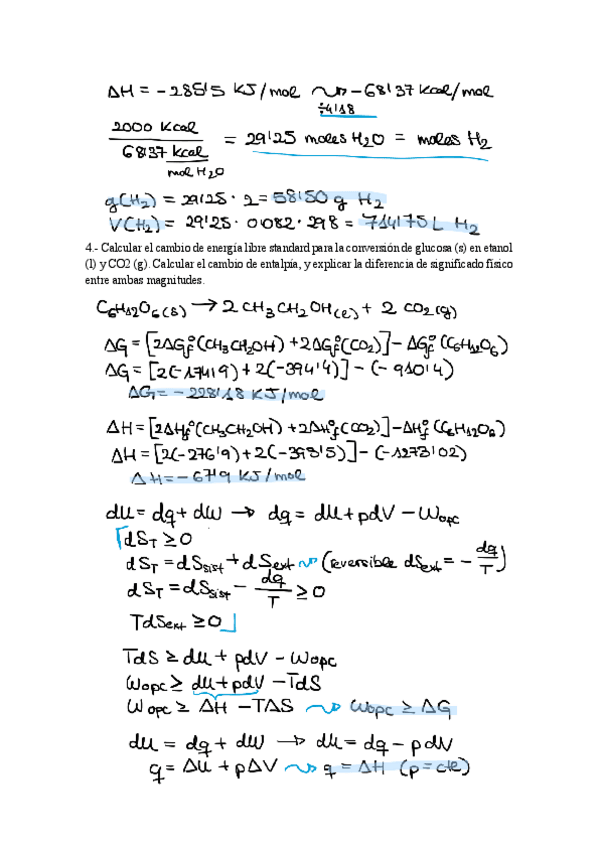 ΔH = -285'5 KJ/mol ⇝ -68'37 Kcal/mol
÷4'18
2000 Kcal / 68'37 Kcal/mol H₂O = 29'25 moles H₂O = moles H₂
g(H₂) = 29'25 · 2 = 58'50 g H₂
V(H₂) = 29'25 · 0'082 · 298 = 714'75 L H₂
4.- Calcular el cambio de energía libre standard para la conversión de glucosa (s) en etanol
(l) y CO2 (g). Calcular el cambio de entalpía, y explicar la diferencia de significado físico
entre ambas magnitudes.
C₆H₁₂O₆(s) → 2 CH₃CH₂OH(l) + 2 CO₂(g)
ΔG = [2ΔG°f(CH₃CH₂OH) + 2ΔG°f(CO₂)] - ΔG°f(C₆H₁₂O₆)
ΔG = [2(-174'9) + 2(-394'4)] - (-910'4)
ΔG = -228'18 KJ/mol
ΔH = [2ΔH°f(CH₃CH₂OH) + 2ΔH°f(CO₂)] - ΔH°f(C₆H₁₂O₆)
ΔH = [2(-276'9) + 2(-393'5)] - (-1273'02)
ΔH = -67'9 KJ/mol
du = dq + dw → dq = du + pdV - Wopc
⌈dS_T ≥ 0
dS_T = dSsist + dSext ⇝ (reversible dSext = - dq/T)
dS_T = dSsist - dq/T ≥ 0
TdSext ≥ 0⌋
TdS ≥ du + pdV - Wopc
Wopc ≥ du + pdV - TdS
Wopc ≥ ΔH - TΔS ⇝ Wopc ≥ ΔG
du = dq + dw → du = dq - pdV
q = Δu + pΔV ⇝ q = ΔH (p = cte)